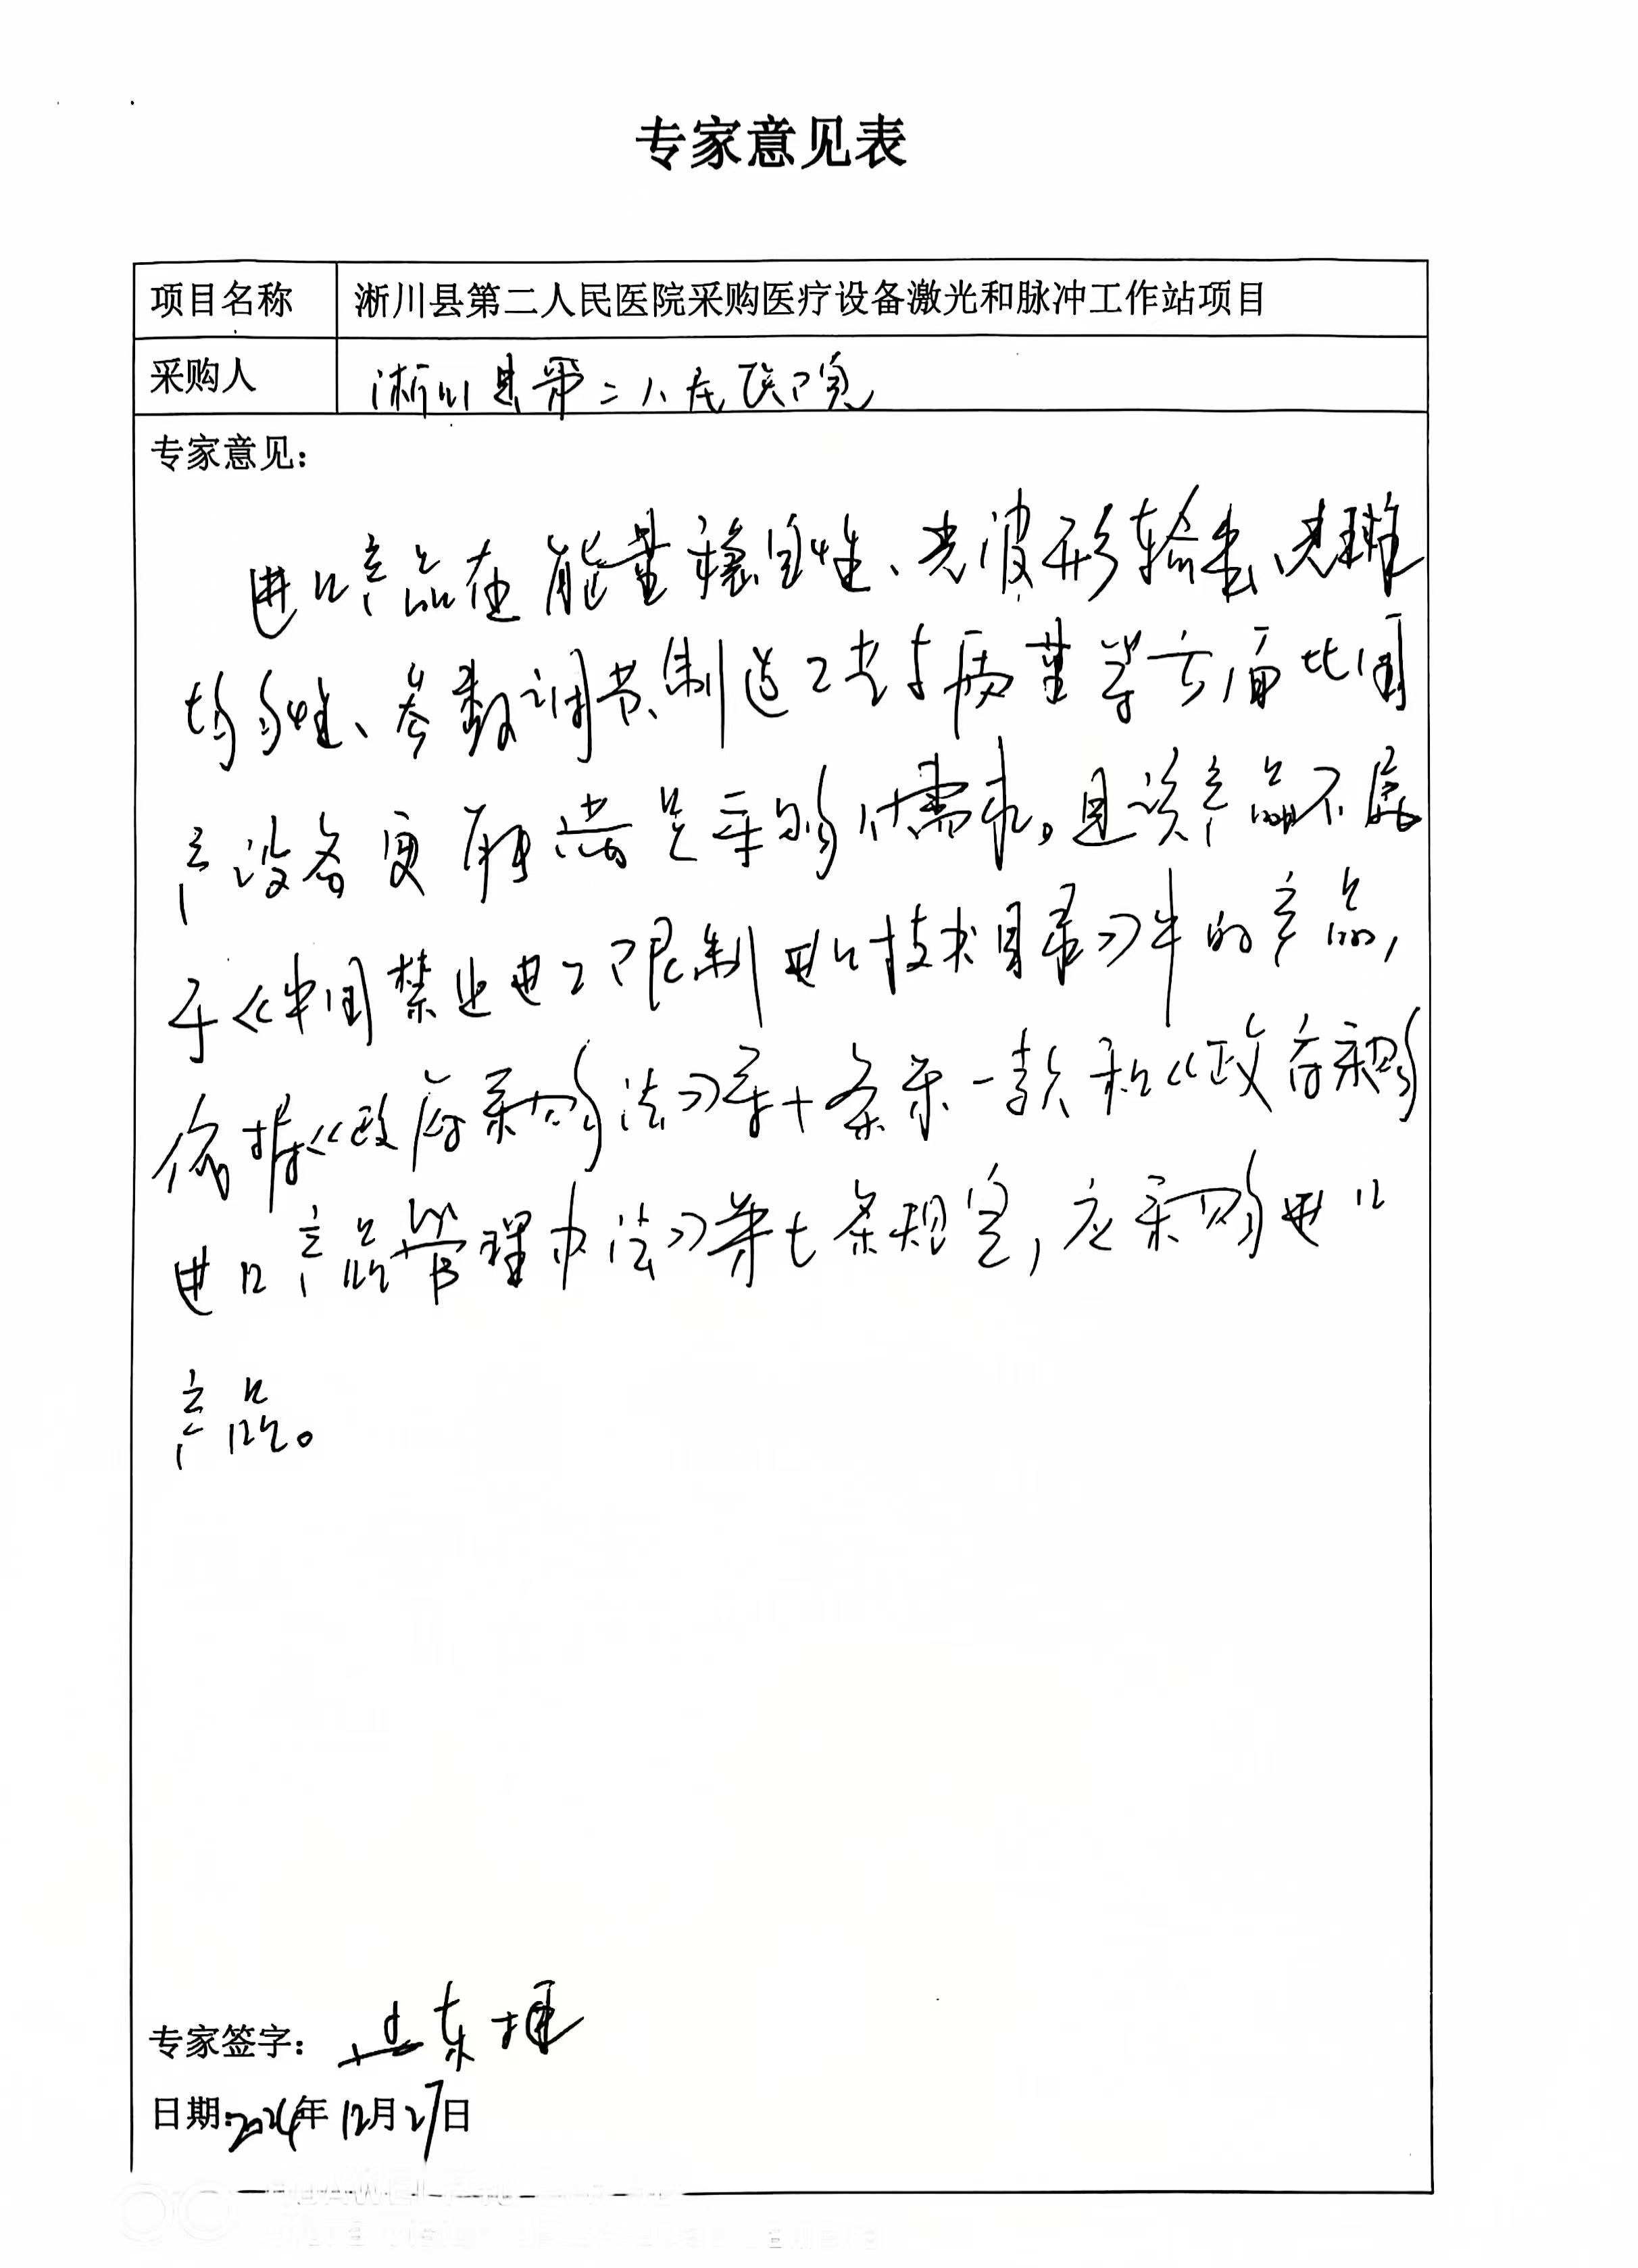 专家意见表
项目名称 淅川县第二人民医院采购医疗设备激光和脉冲工作站项目
采购人 淅川县第二人民医院
专家意见：
进口产品在能量稳定性、光波形输出、光斑
均匀性、参数调节、制造工艺与质量等方面比国
产设备更能满足采购需求。且该产品不属
于《中国禁止进口限制进口技术目录》中的产品，
依据《政府采购法》第十条第一款和《政府采购
进口产品管理办法》第七条规定，应采购进口
产品。
专家签字：
日期：2024年12月27日